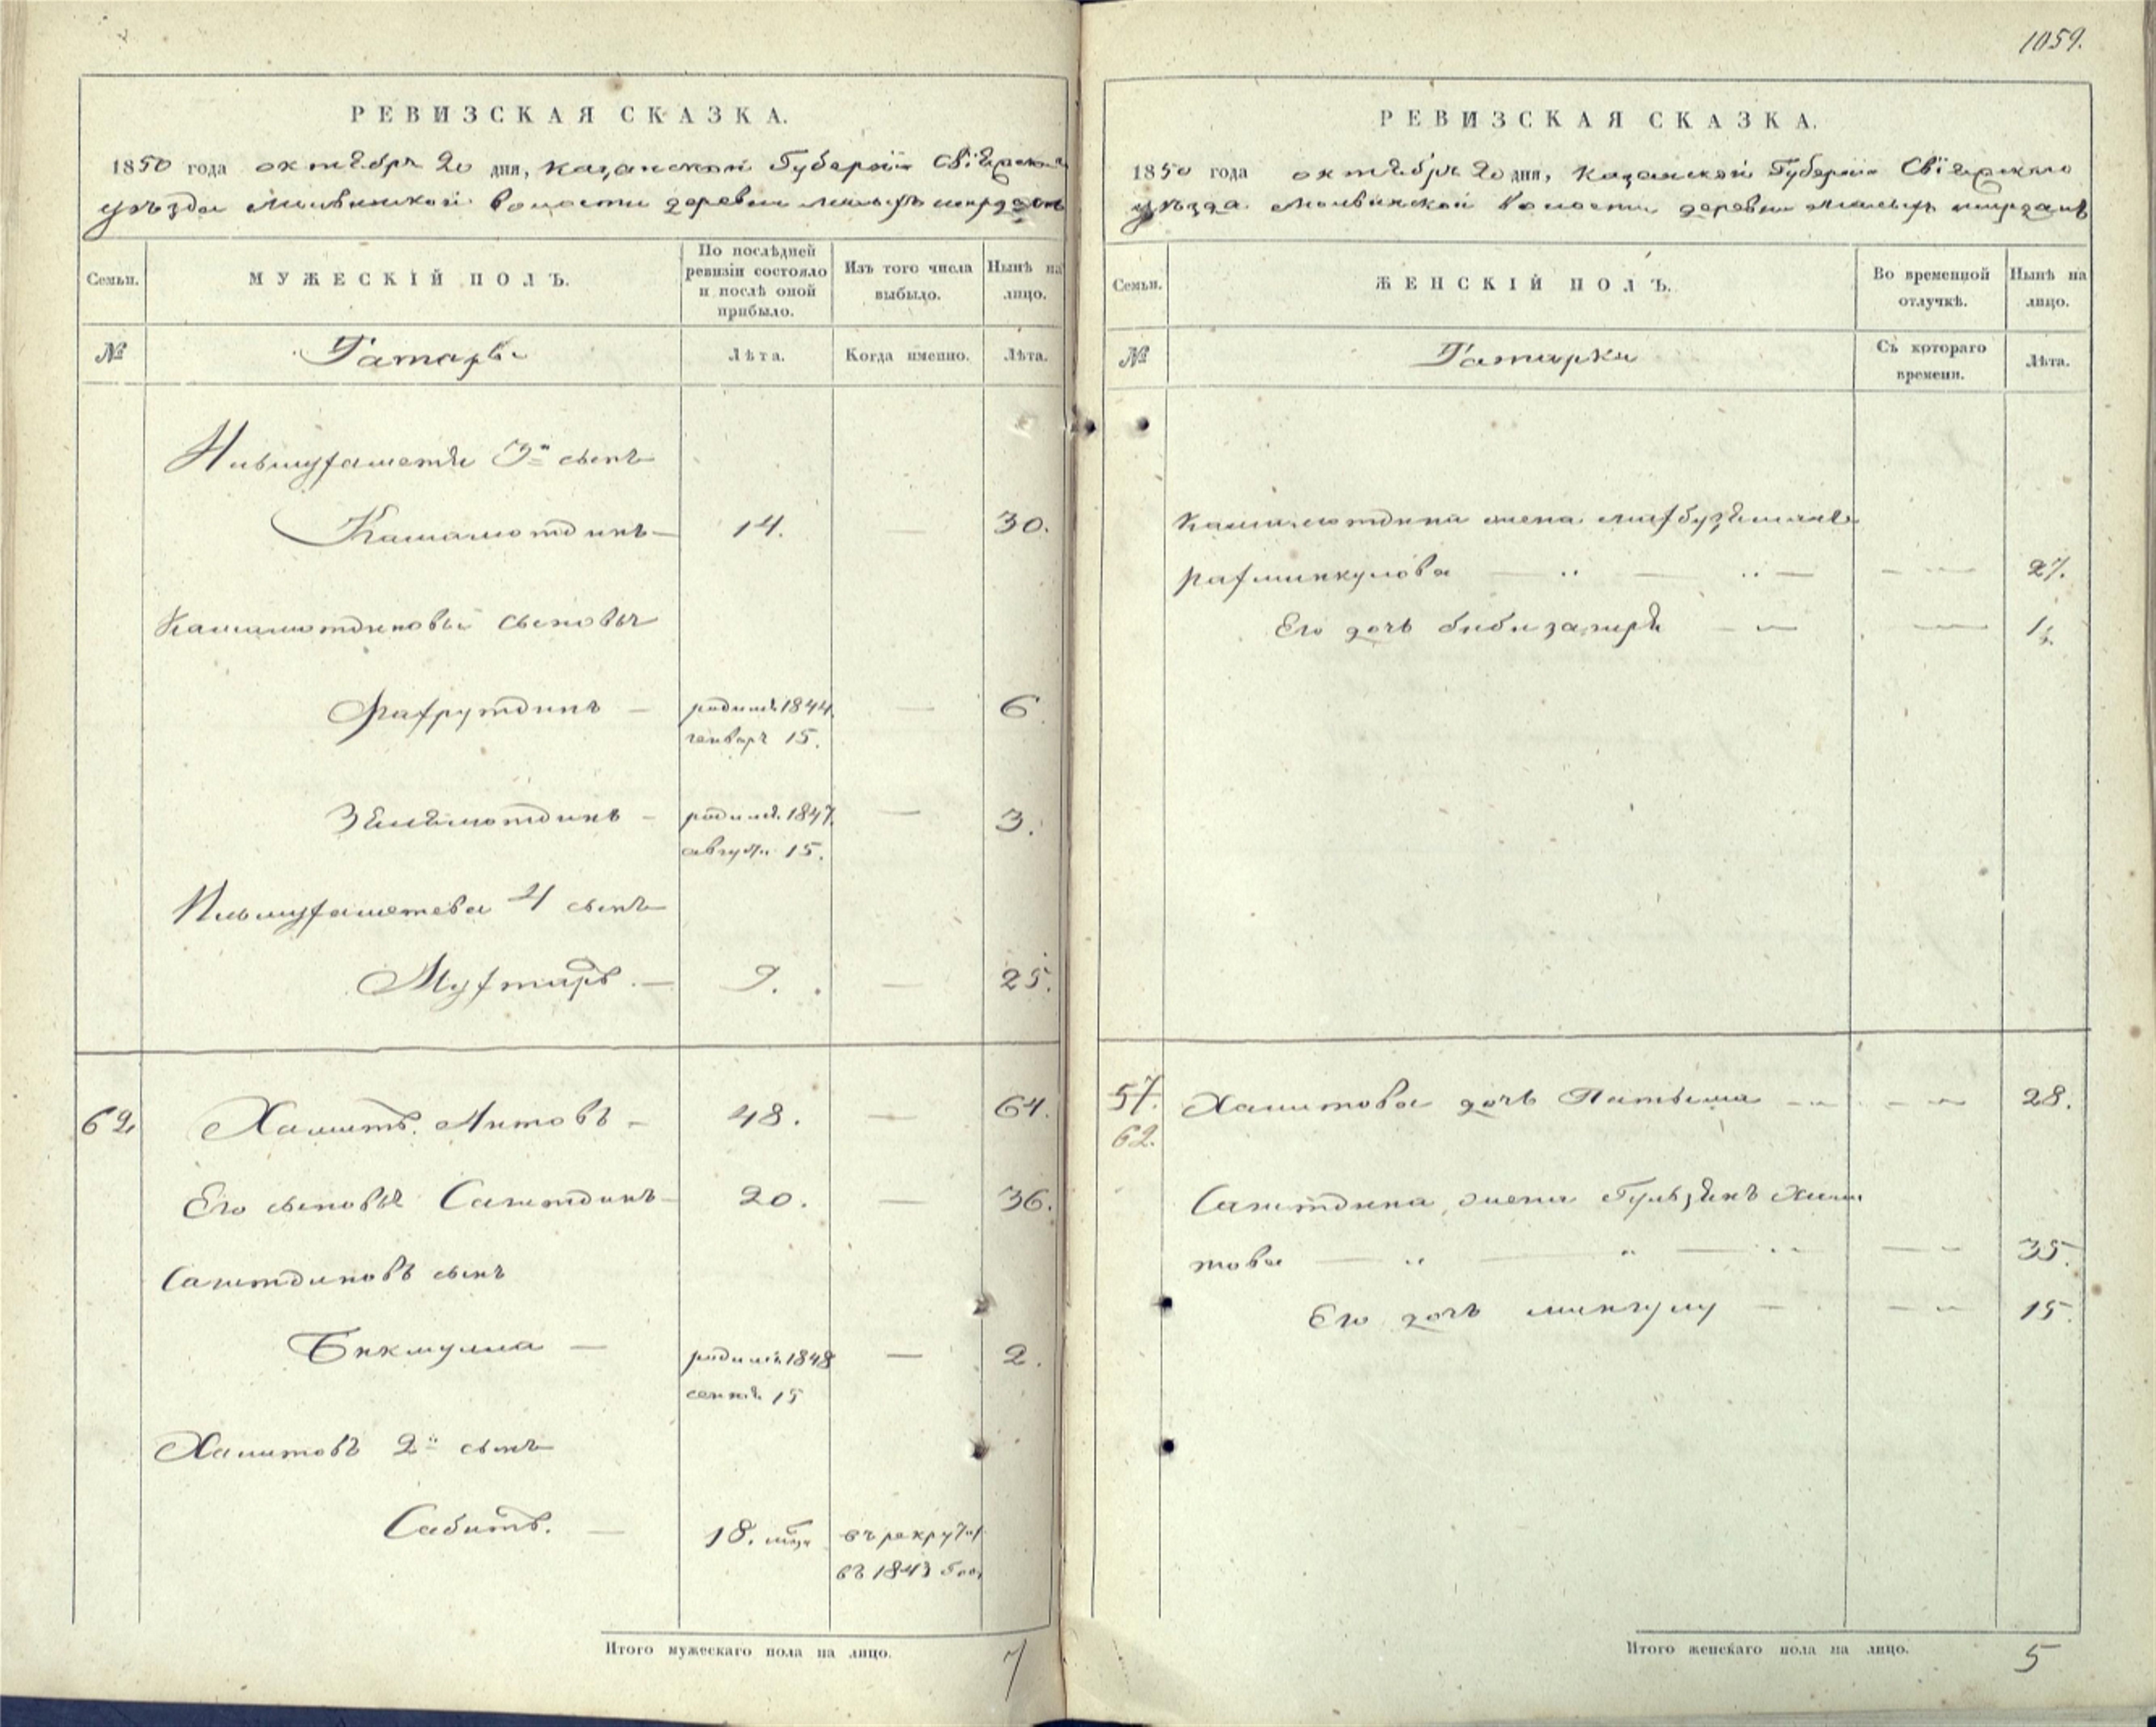 1059.
РЕВИЗСКАЯ СКАЗКА.
1850 года октября 20 дня, Казанской Губернии Свіяжскаго
уѣзда Молвинской волости деревни
Семьи.
МУЖЕСКІЙ ПОЛЪ.
По послѣдней ревизіи состояло и послѣ оной прибыло.
Изъ того числа выбыло.
Нынѣ на лицо.
№
Татары
Лѣта.
Когда именно.
Лѣта.
3й сынъ
Камалютдинъ — 14. — 30.
Камалютдиновы сыновья
Фахрутдинъ — родился 1844 — 6
генваря 15.
Зѣлялютдинъ — родился 1847. — 3.
августа 15.
4 сынъ
Мухтаръ. — 9. — 25.
62 Хамитъ Аитовъ — 48. — 64.
Его сыновья Саитдинъ — 20. — 36.
Саитдиновъ сынъ
Бикмулла — родился 1848 — 2.
сентя 15
Хамитовъ 2й сынъ
Сабитъ. — 18. въ рекруты
въ 1843 году
Итого мужескаго пола на лицо. 7
РЕВИЗСКАЯ СКАЗКА.
1850 года октября 20 дня, Казанской Губернии Свіяжскаго
уѣзда Молвинской волости деревни
Семьи.
ЖЕНСКІЙ ПОЛЪ.
Во временной отлучкѣ.
Нынѣ на лицо.
№
Татарки
Съ котораго времени.
Лѣта.
Камалютдина жена
Рахманкулова — — 27.
Его дочь — —
57. Хамитова дочь Фатыма — — 28.
62.
Саитдина жена Хами
това — — 35.
Его дочь — — 15.
Итого женскаго пола на лицо. 5